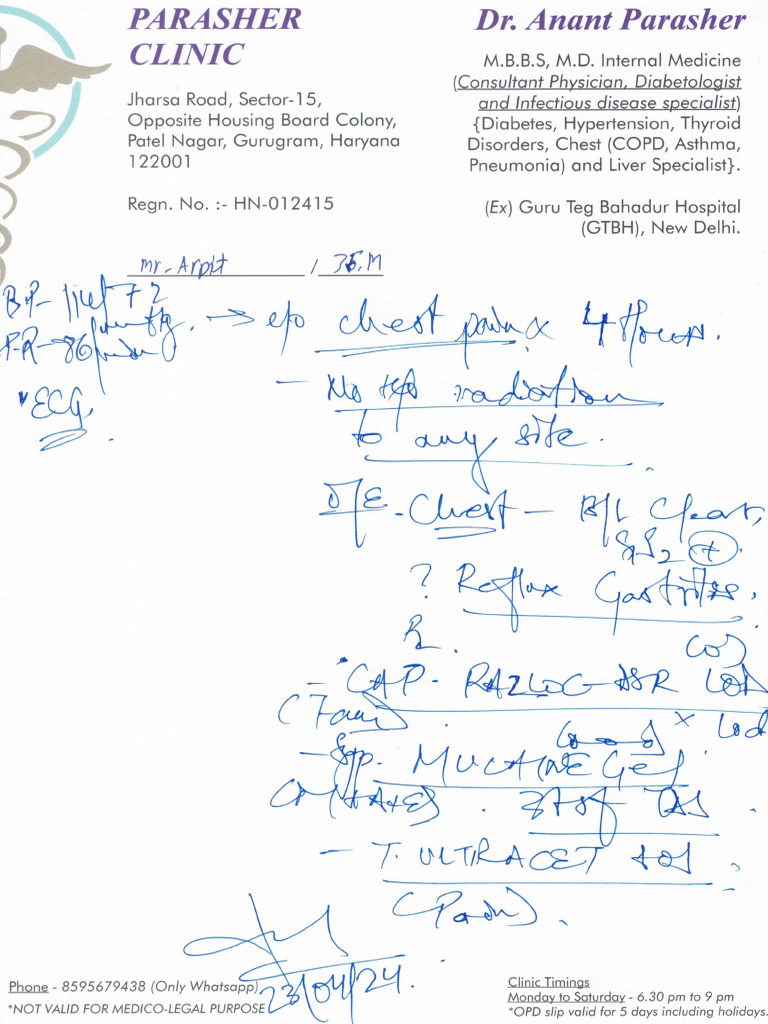 PARASHER
CLINIC
Jharsa Road, Sector-15,
Opposite Housing Board Colony,
Patel Nagar, Gurugram, Haryana
122001
Regn. No. :- HN-012415
Dr. Anant Parasher
M.B.B.S, M.D. Internal Medicine
(Consultant Physician, Diabetologist
and Infectious disease specialist)
{Diabetes, Hypertension, Thyroid
Disorders, Chest (COPD, Asthma,
Pneumonia) and Liver Specialist}.
(Ex) Guru Teg Bahadur Hospital
(GTBH), New Delhi.
Mr. Arpit / 35.M
BP-
PR - 86/min
ECG.
→ c/o chest pain x 4 Hours.
- No radiation
to any site.
O/E - Chest - B/L Clear,
S1S2 +.
? Reflux Gastritis.
Rx.
- CAP - RAZLOG-DSR
- Syp. MUCAINE Gel
- T. ULTRACET SOS
(Pain).
23/04/24.
Phone - 8595679438 (Only Whatsapp)
*NOT VALID FOR MEDICO-LEGAL PURPOSE
Clinic Timings
Monday to Saturday - 6.30 pm to 9 pm
*OPD slip valid for 5 days including holidays.